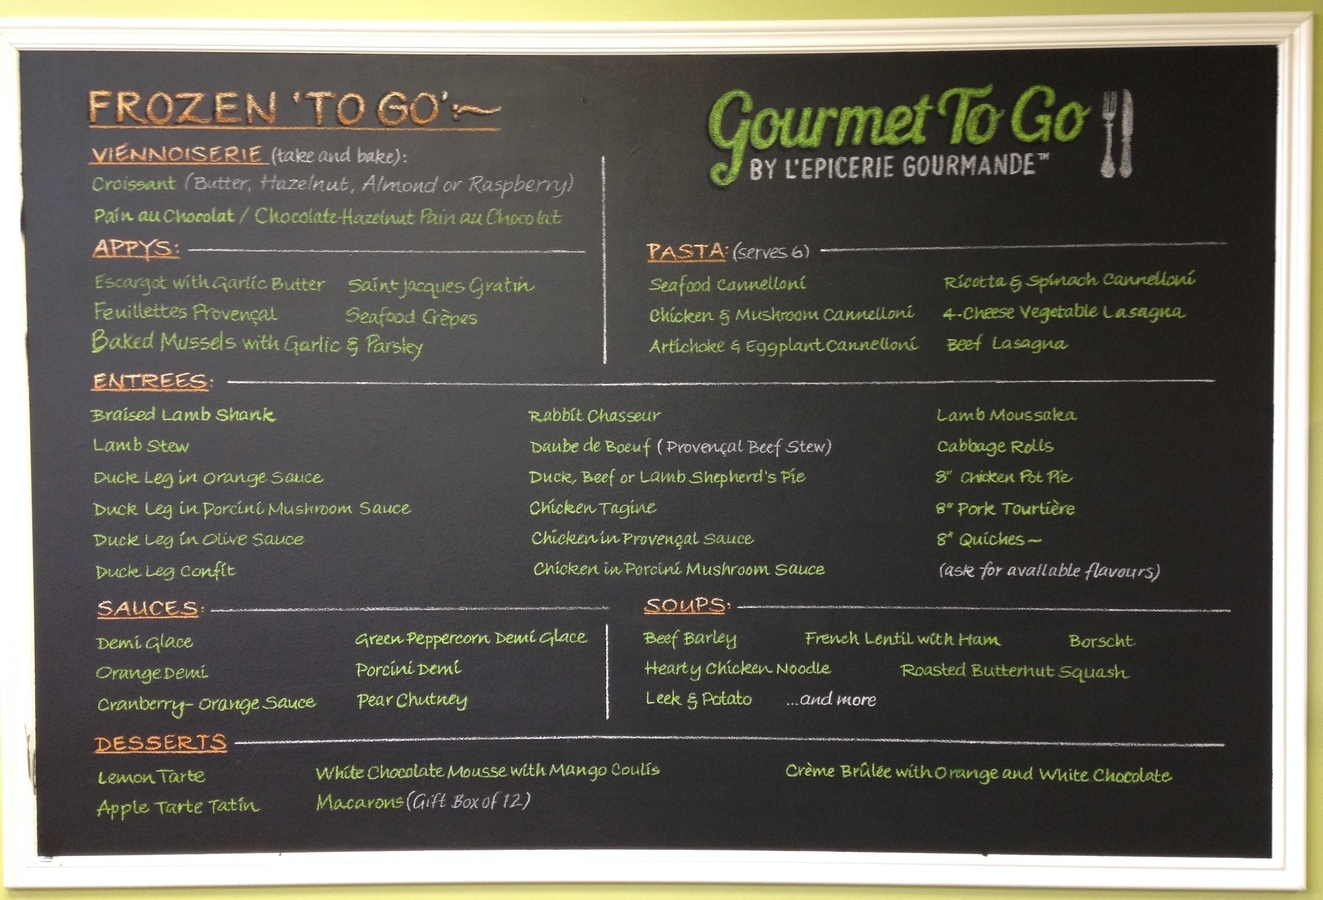 FROZEN 'TO GO'~
Gourmet To Go
BY L'EPICERIE GOURMANDE™
VIENNOISERIE (take and bake):
Croissant (Butter, Hazelnut, Almond or Raspberry)
Pain au Chocolat / Chocolate-Hazelnut Pain au Chocolat
APPYS:
Escargot with Garlic Butter Saint Jacques Gratin
Feuillettes Provençal Seafood Crèpes
Baked Mussels with Garlic & Parsley
PASTA: (serves 6)
Seafood Cannelloni Ricotta & Spinach Cannelloni
Chicken & Mushroom Cannelloni 4-Cheese Vegetable Lasagna
Artichoke & Eggplant Cannelloni Beef Lasagna
ENTREES:
Braised Lamb Shank Rabbit Chasseur Lamb Moussaka
Lamb Stew Daube de Boeuf (Provençal Beef Stew) Cabbage Rolls
Duck Leg in Orange Sauce Duck, Beef or Lamb Shepherd's Pie 8" Chicken Pot Pie
Duck Leg in Porcini Mushroom Sauce Chicken Tagine 8" Pork Tourtière
Duck Leg in Olive Sauce Chicken in Provençal Sauce 8" Quiches~
Duck Leg Confit Chicken in Porcini Mushroom Sauce (ask for available flavours)
SAUCES:
Demi Glace Green Peppercorn Demi Glace
Orange Demi Porcini Demi
Cranberry-Orange Sauce Pear Chutney
SOUPS:
Beef Barley French Lentil with Ham Borscht
Hearty Chicken Noodle Roasted Butternut Squash
Leek & Potato ...and more
DESSERTS
Lemon Tarte White Chocolate Mousse with Mango Coulis Crème Brûlée with Orange and White Chocolate
Apple Tarte Tatin Macarons (Gift Box of 12)